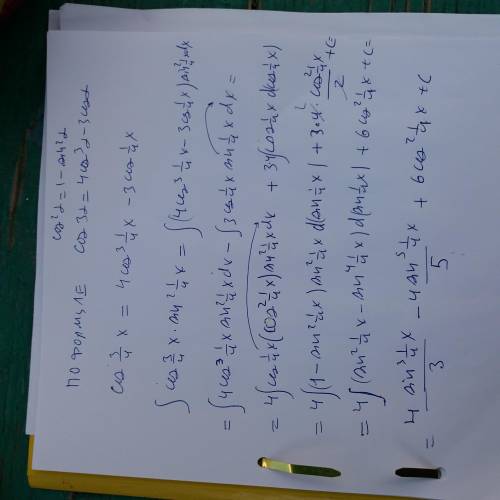 по формуле
cos²α = 1 − sin²α
cos 3α = 4cos³α − 3cosα
cos 3/4 x = 4cos³ 1/4 x − 3cos 1/4 x
∫ cos 3/4 x · sin² 1/4 x = ∫ (4cos³ 1/4 x − 3cos 1/4 x) sin² 1/4 x dx
= ∫ 4cos³ 1/4 x sin² 1/4 x dx − ∫ 3cos 1/4 x sin 1/4 x dx =
= 4∫ cos 1/4 x (cos² 1/4 x) sin² 1/4 x dx + 3·4∫ (cos 1/4 x d cos 1/4 x)
= 4∫ (1 − sin² 1/4 x) sin² 1/4 x d(sin 1/4 x) + 3·4 · cos² 1/4 x / 2 + C =
= 4∫ (sin² 1/4 x − sin⁴ 1/4 x) d(sin 1/4 x) + 6cos² 1/4 x + C =
= 4 sin³ 1/4 x / 3 − 4 sin⁵ 1/4 x / 5 + 6cos² 1/4 x + C